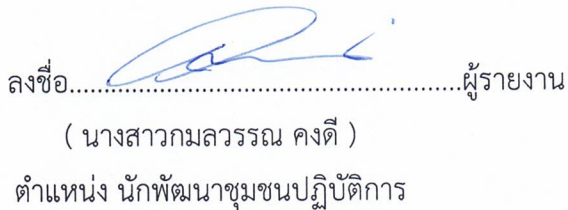 ลงชื่อ..........................................................ผู้รายงาน
( นางสาวกมลวรรณ คงดี )
ตำแหน่ง นักพัฒนาชุมชนปฏิบัติการ